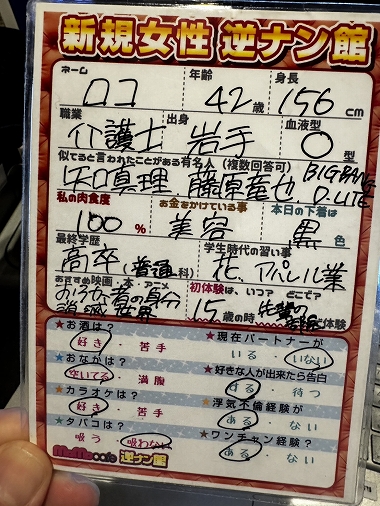 新規女性 逆ナン館
ネーム ロコ 年齢 42歳 身長 156cm
職業 介護士 出身 岩手 血液型 O型
似てると言われたことがある有名人(複数回答可) BIGBANG
矢口真理、藤原竜也、D-LITE
私の肉食度 100% お金をかけている事 美容 本日の下着は 黒色
最終学歴 高卒(普通科) 学生時代の習い事 花、アパレル業
おすすめ映画・本・アニメ 初体験は、いつ? どこで?
15歳の時 先輩の で体験
★お酒は? ★現在パートナーが
好き・苦手 いる・いない
★おなかは? ★好きな人が出来たら告白
空いてる・満腹 する・待つ
★カラオケは? ★浮気不倫経験が
好き・苦手 ある・ない
★タバコは? ★ワンチャン経験?
吸う・吸わない ある・ない
MoMocafe 逆ナン館